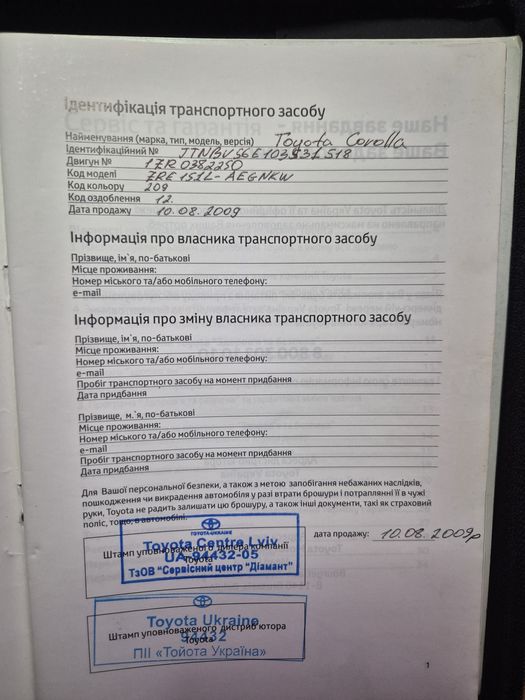 Ідентифікація транспортного засобу
Найменування (марка, тип, модель, версія) Toyota Corolla
Ідентифікаційний № JTNBV56E103531518
Двигун № 1ZR0382250
Код моделі ZRE151L-AEGNKW
Код кольору 209
Код оздоблення 12
Дата продажу 10.08.2009
Інформація про власника транспортного засобу
Прізвище, ім`я, по-батькові
Місце проживання:
Номер міського та/або мобільного телефону:
e-mail
Інформація про зміну власника транспортного засобу
Прізвище, ім`я, по-батькові
Місце проживання:
Номер міського та/або мобільного телефону:
e-mail
Пробіг транспортного засобу на момент придбання
Дата придбання
Прізвище, м.`я, по-батькові
Місце проживання:
Номер міського та/або мобільного телефону:
e-mail
Пробіг транспортного засобу на момент придбання
Дата придбання
Для Вашої персональної безпеки, а також з метою запобігання небажаних наслідків,
пошкодження чи викрадення автомобіля у разі втрати брошури і потраплянні її в чужі
руки, Toyota не радить залишати цю брошуру, а також інші документи, такі як страховий
поліс, тощо, в автомобілі.
TOYOTA-UKRAINE
Toyota Centre Lviv
Штамп уповноваженого дилера компанії
UA-94432-05
Toyota
ТзОВ "Сервісний центр "Діамант"
дата продажу: 10.08.2009р
Toyota Ukraine
Штамп уповноваженого дистриб ютора
94432
Toyota
ПІІ «Тойота Україна»
1